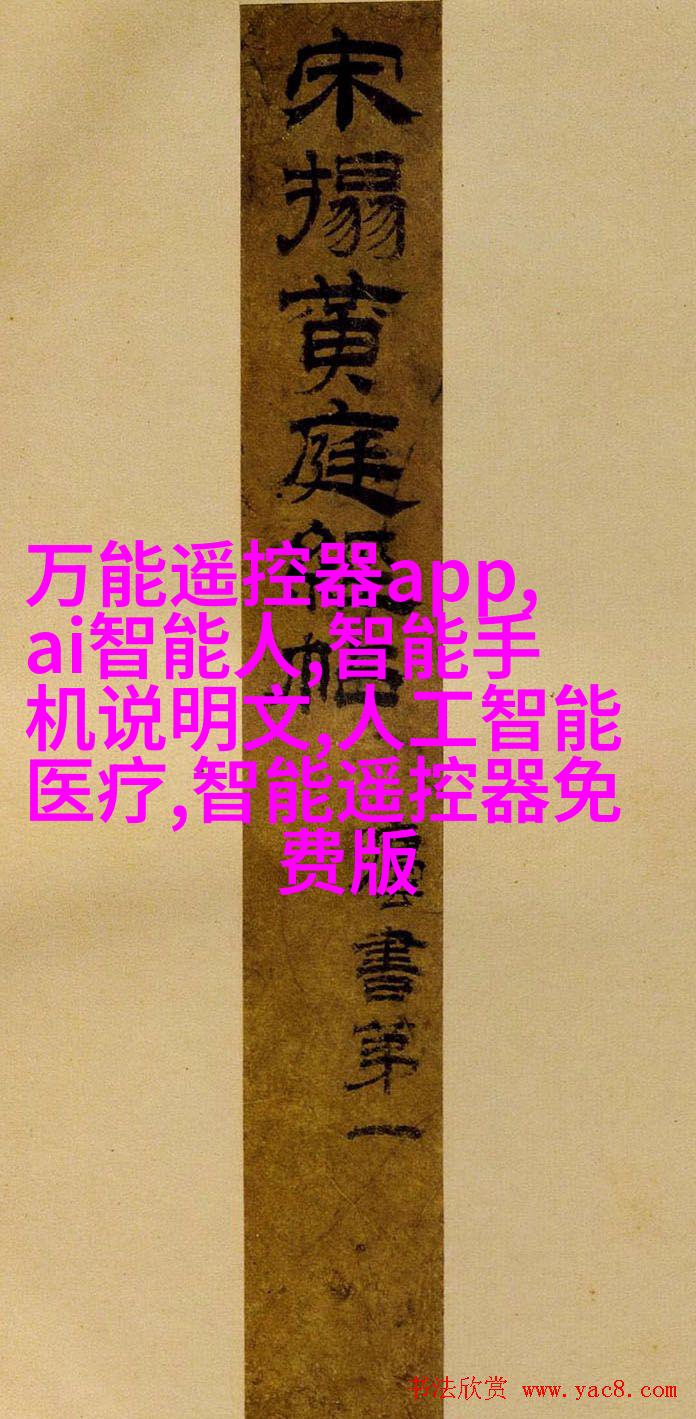 宋搨黃庭經帖
書第一
万能遥控器app,
ai智能人,智能手
机说明文,人工智能
医疗,智能遥控器免
费版
书法欣赏 www.yac8.com